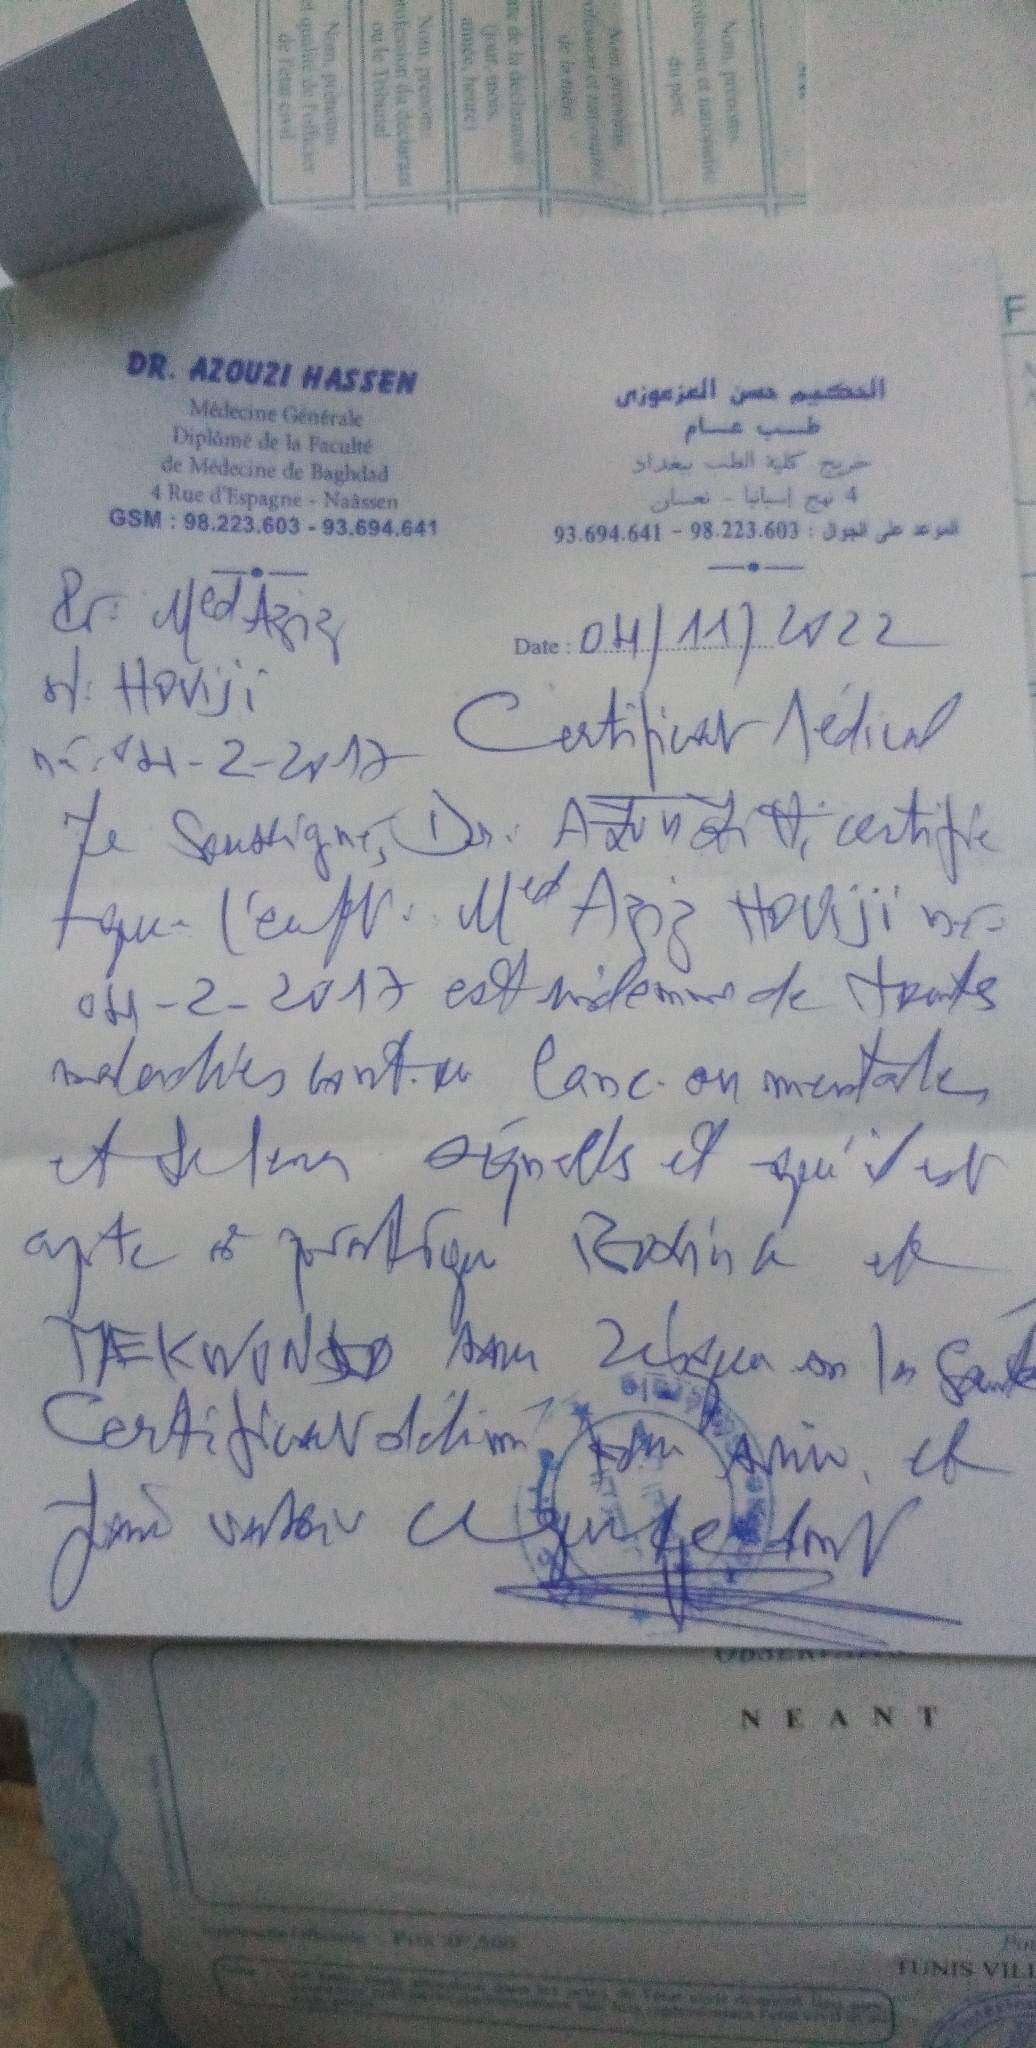 Nom, prénoms
et qualité de l'officier
de l'état civil
Nom, prénom,
profession du déclarant
ou le Tribunal
de la déclaration
(jour, mois,
année, heure)
Nom, prénoms,
profession et nationalité
de la mère
Nom, prénoms,
profession et nationalité
du père
F
DR. AZOUZI HASSEN
Médecine Générale
Diplômé de la Faculté
de Médecine de Baghdad
4 Rue d'Espagne - Naâssen
GSM : 98.223.603 - 93.694.641
الحكيم حسن العزعوزي
طب عام
خريج كلية الطب ببغداد
4 نهج إسبانيا - نعسان
الموعد على الجوال : 98.223.603 - 93.694.641
Pr: Med Aziz
Date : 04/11/2022
N: HOVIJI
né: 04-2-2017
Certificat Médical
Je soussigné, Dr. AZOUZI H, certifie
que l'enft. Med Aziz HOVIJI né
04-2-2017 est indemne de toutes
maladies ou mentales
et et qu'il est
apte à pratiquer et
TAEKWONDO sans la santé
Certificat délivré et
fait valoir ce que de droit
NEANT
TUNIS VILL